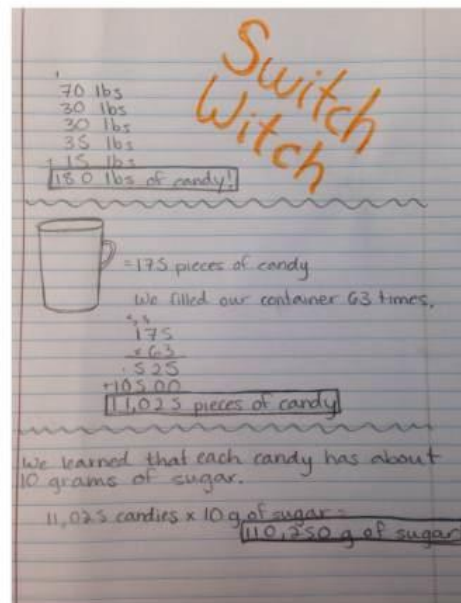 Switch
Witch
1
70 lbs
30 lbs
30 lbs
35 lbs
+ 15 lbs
180 lbs of candy!
= 175 pieces of candy
We filled our container 63 times.
175
× 63
525
+10500
11,025 pieces of candy
We learned that each candy has about
10 grams of sugar.
11,025 candies × 10 g of sugar =
110,250 g of sugar